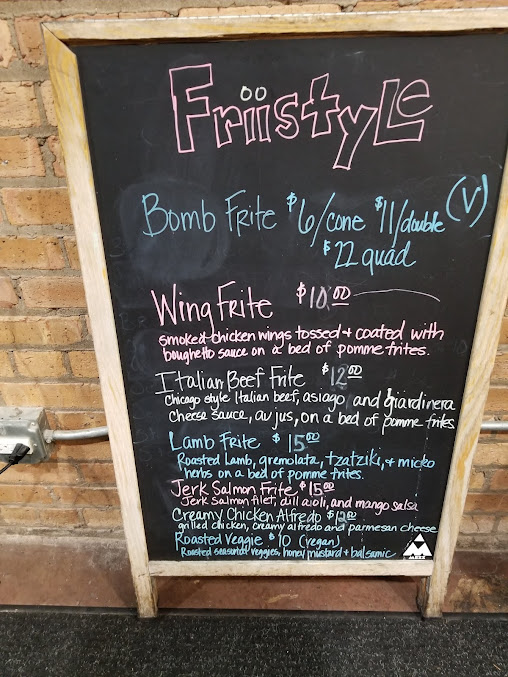 FriistyLe
Bomb Frite $6/cone $11/double (V)
$22 quad
Wing Frite $10.00
smoked chicken wings tossed + coated with
boughetto sauce on a bed of pomme frites.
Italian Beef Frite $12.00
Chicago style Italian beef, asiago, and giardinera
cheese sauce, au jus, on a bed of pomme frites
Lamb Frite $15.00
Roasted Lamb, gremolata, tzatziki, + micro
herbs on a bed of pomme frites.
Jerk Salmon Frite $15.00
Jerk Salmon filet, dill aioli, and mango salsa
Creamy Chicken Alfredo $12.00
grilled chicken, creamy alfredo and parmesan cheese
Roasted Veggie $10 (vegan)
Roasted seasonal veggies, honey mustard + balsamic